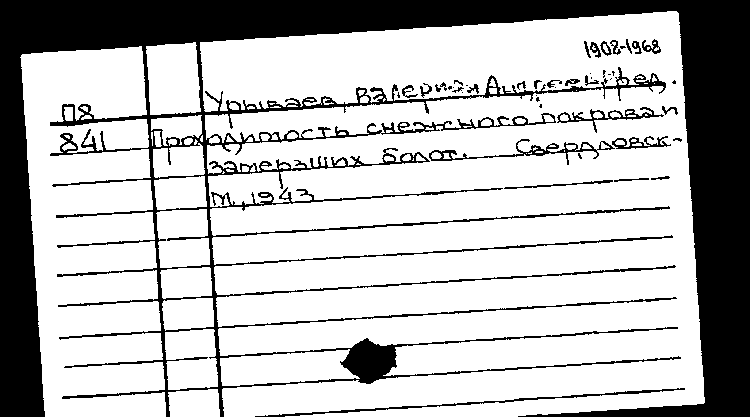 1908-1968
П8 Урываев, Валериан Андреевич, ред.
841 Проходимость снежного покрова и
замерзших болот. Свердловск-
М., 1943